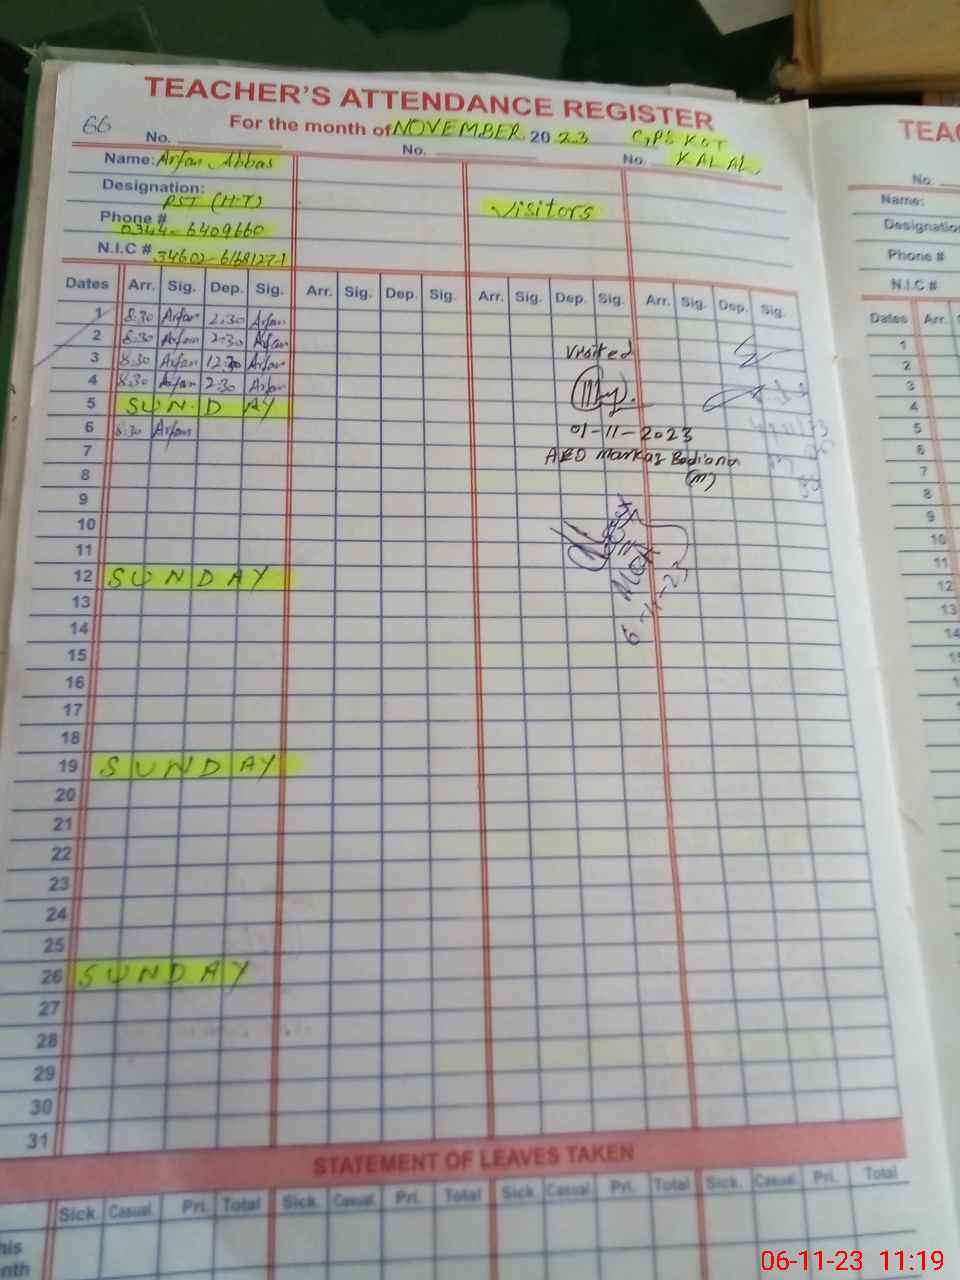 TEACHER'S ATTENDANCE REGISTER
For the month of NOVEMBER 2023 GPS KOT
66 No. No. No. KALAL.
Name: Arfan Abbas
Designation: PST (H.T)
Visitors
Phone # 0344-6409660
N.I.C # 34602-6168127-1
Dates Arr. Sig. Dep. Sig. Arr. Sig. Dep. Sig. Arr. Sig. Dep. Sig. Arr. Sig. Dep. Sig.
1 8:30 Arfan 2:30 Arfan
2 8:30 Arfan 2:30 Arfan
3 8:30 Arfan 12:30 Arfan
4 8:30 Arfan 2:30 Arfan
5 SUNDAY
6 8:30 Arfan
7
8
9
10
11
12 SUNDAY
13
14
15
16
17
18
19 SUNDAY
20
21
22
23
24
25
26 SUNDAY
27
28
29
30
31
Visited
01-11-2023
AEO Markaz Badiana
(M)
6-11-23
STATEMENT OF LEAVES TAKEN
Sick Casual Pri. Total Sick Casual Pri. Total Sick Casual Pri. Total Sick Casual Pri. Total
his
nth
TEAC
No.
Name:
Designatio
Phone #
N.I.C #
Dates Arr.
1
2
3
4
5
6
7
8
9
10
11
12
13
14
15
06-11-23 11:19